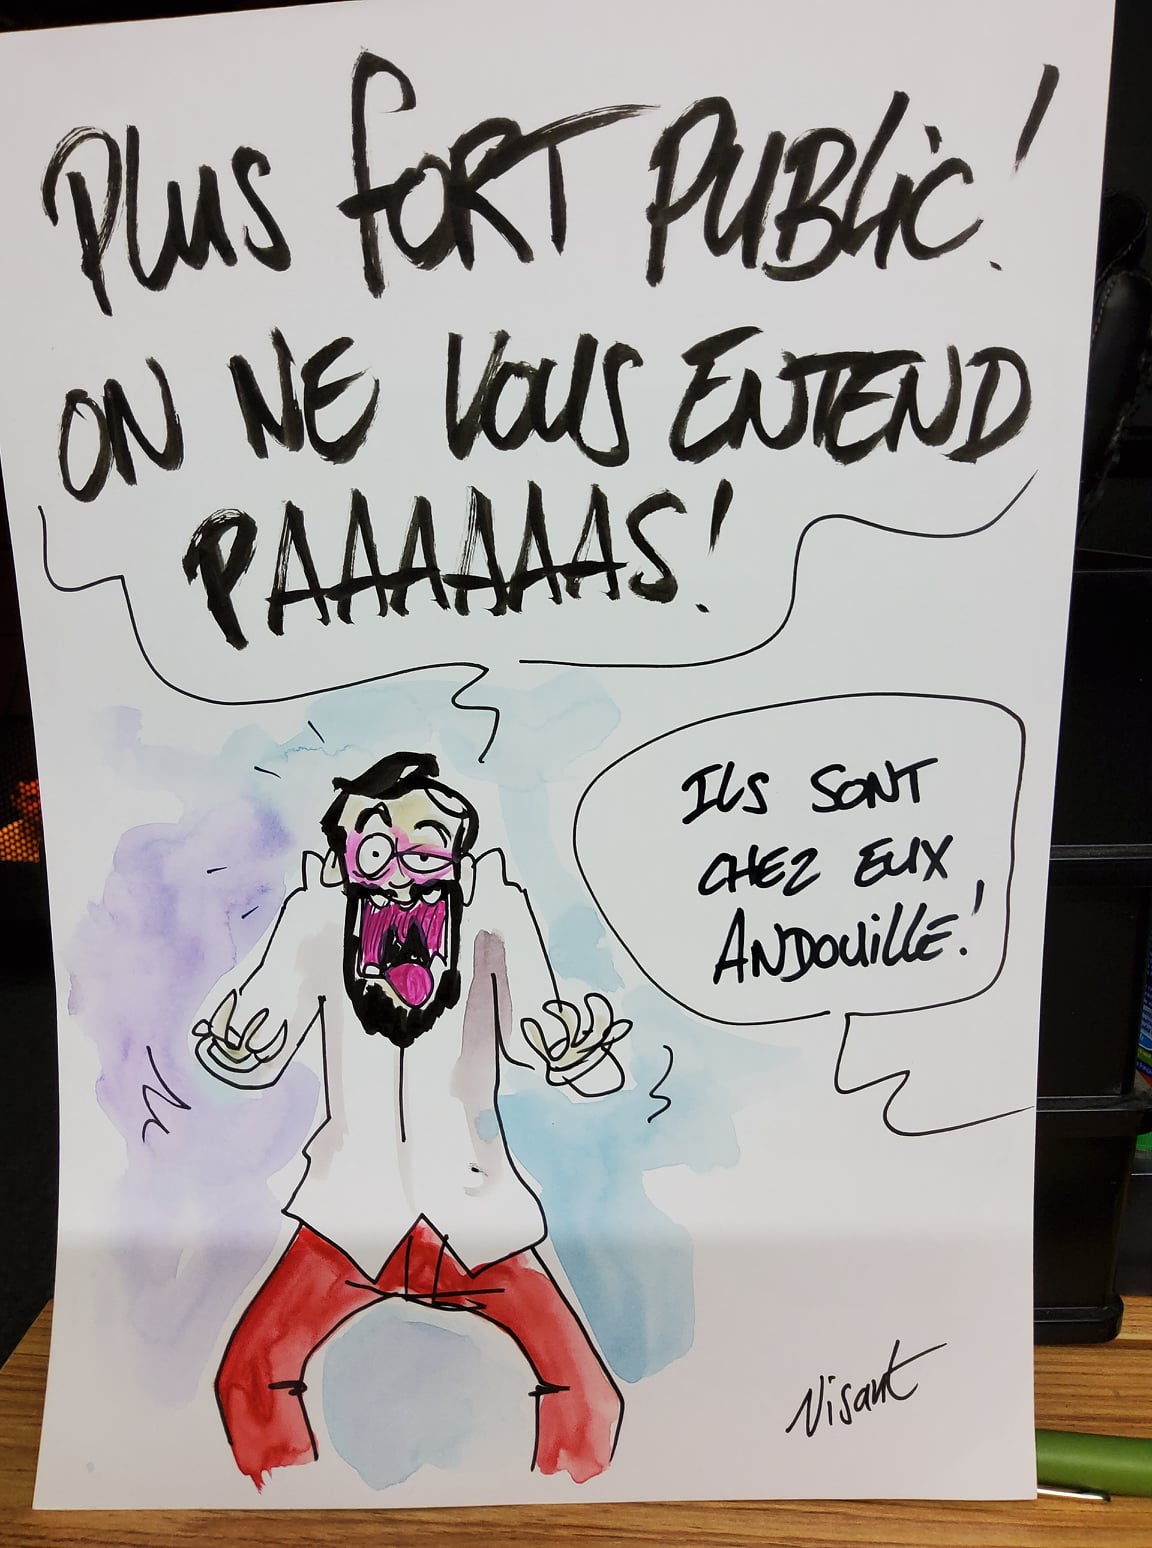 PLUS FORT PUBLIC!
ON NE VOUS ENTEND
PAAAAAAS!
ILS SONT
CHEZ EUX
ANDOUILLE!
Nisant